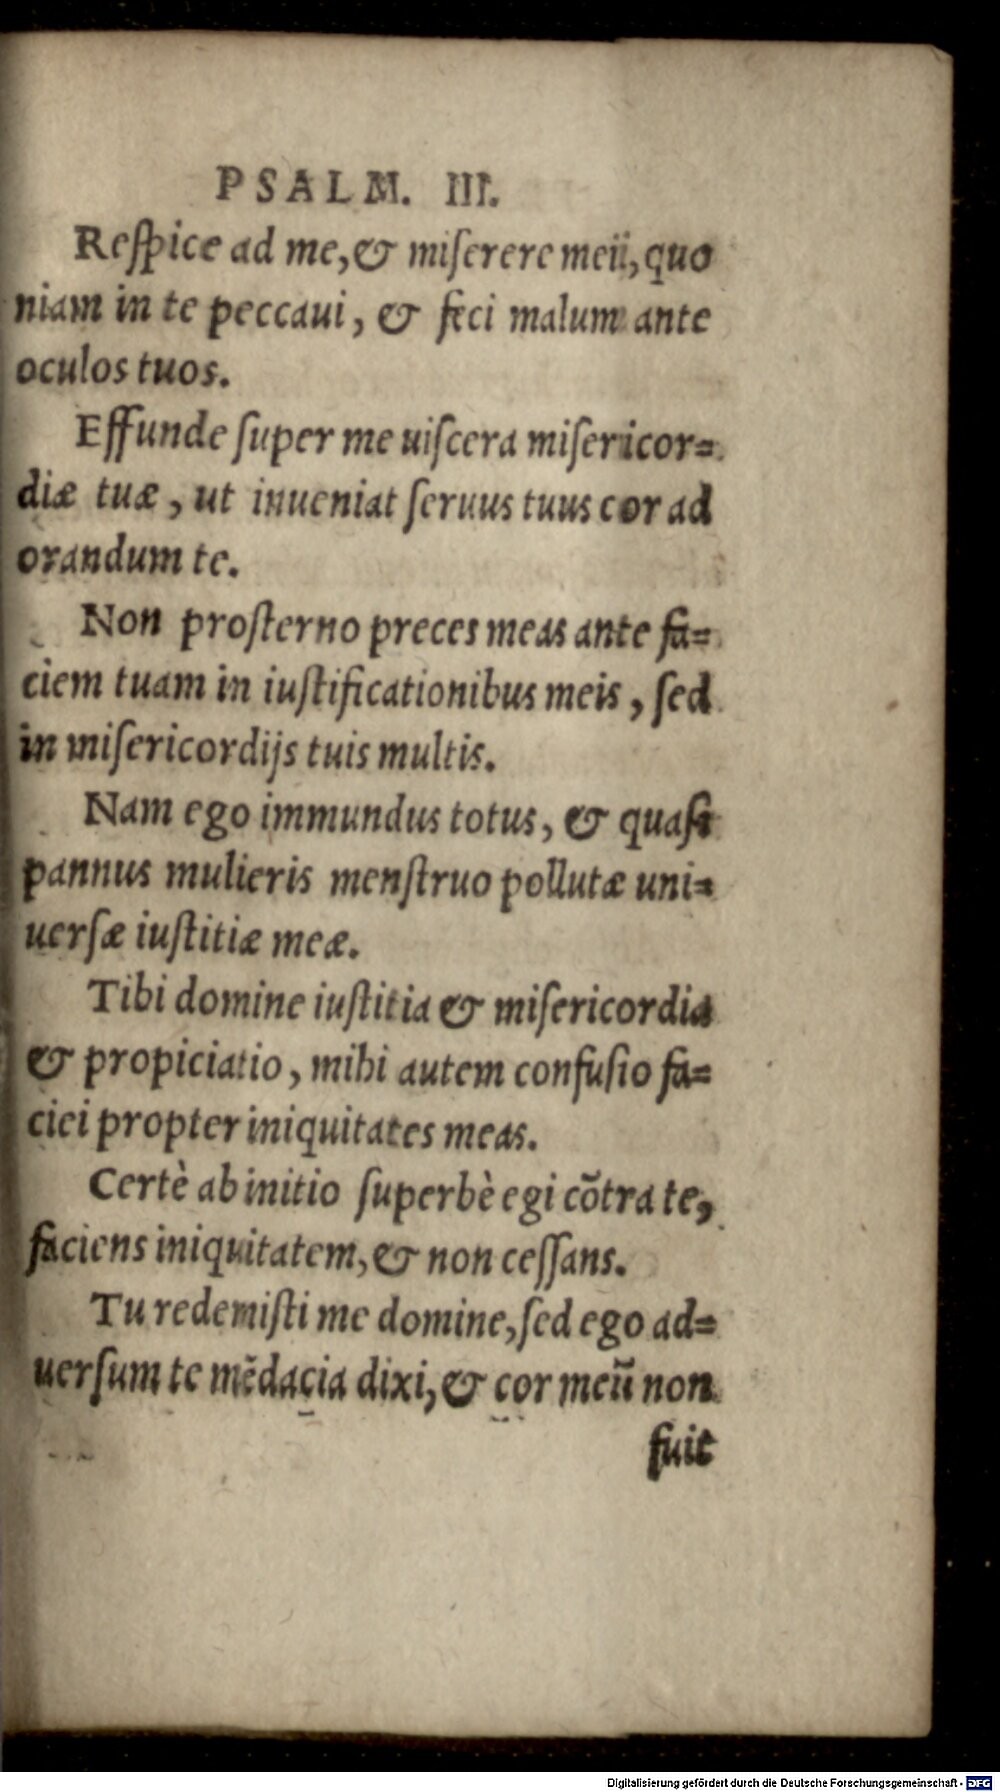 PSALM. III.
Reſpice ad me, & miſerere meii, quo
niam in te peccaui, & feci malum ante
oculos tuos.
Effunde ſuper me uiſcera miſericor=
diæ tuæ, ut inueniat ſeruus tuus cor ad
orandum te.
Non proſterno preces meas ante fa=
ciem tuam in iuſtificationibus meis, ſed
in miſericordijs tuis multis.
Nam ego immundus totus, & quaſi
pannus mulieris menſtruo pollutæ uni=
uerſæ iuſtitiæ meæ.
Tibi domine iuſtitia & miſericordia
& propiciatio, mihi autem confuſio fa=
ciei propter iniquitates meas.
Certè ab initio ſuperbè egi cõtra te,
faciens iniquitatem, & non ceſſans.
Tu redemiſti me domine, ſed ego ad=
uerſum te mẽdacia dixi, & cor meũ non
fuit
Digitalisierung gefördert durch die Deutsche Forschungsgemeinschaft - DFG